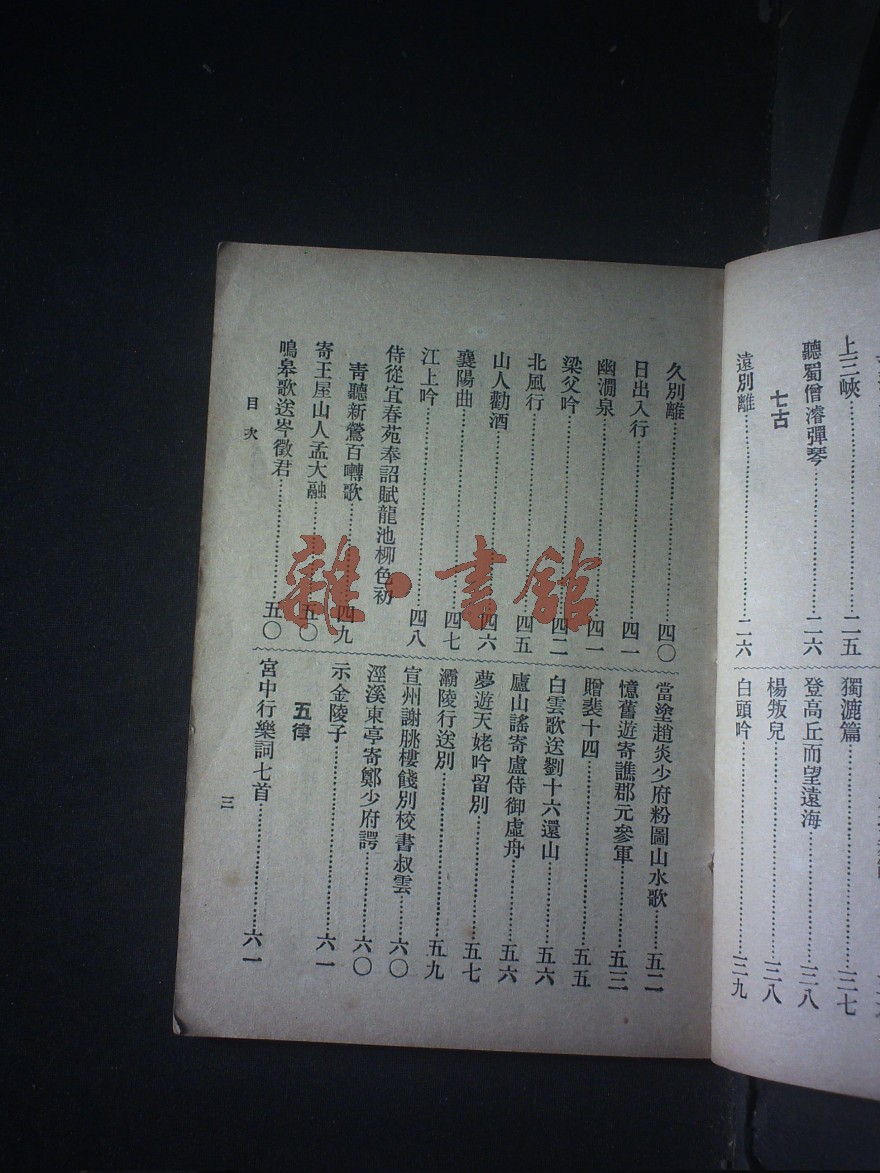 上三峽……二五
聽蜀僧濬彈琴……二六
七古
遠別離……二六
獨漉篇……三七
登高丘而望遠海……三八
楊叛兒……三八
白頭吟……三九
久別離……四〇
日出入行……四一
幽澗泉……四一
梁父吟……四二
北風行……四五
山人勸酒……四六
襄陽曲……四七
江上吟……四八
侍從宜春苑奉詔賦龍池柳色初
青聽新鶯百囀歌……四九
寄王屋山人孟大融……五〇
鳴皋歌送岑徵君……五〇
當塗趙炎少府粉圖山水歌……五二
憶舊遊寄譙郡元參軍……五三
贈裴十四……五五
白雲歌送劉十六還山……五六
廬山謠寄盧侍御虛舟……五六
夢遊天姥吟留別……五七
灞陵行送別……五九
宣州謝脁樓餞別校書叔雲……六〇
涇溪東亭寄鄭少府諤……六〇
示金陵子……六一
五律
宮中行樂詞七首……六一
目次
三
雜·書館